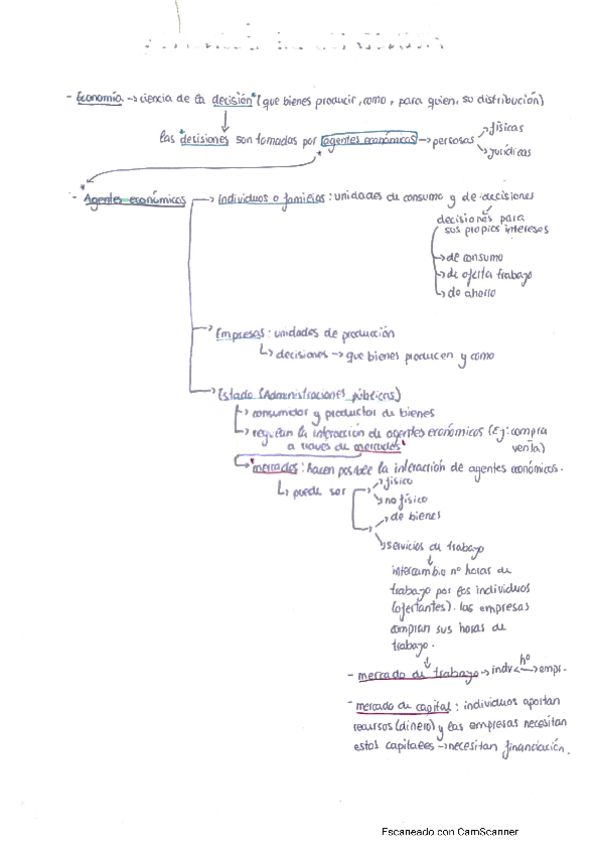 - Economía → ciencia de la decisión* (que bienes producir, como, para quien, su distribución)
las *decisiones son tomadas por agentes económicos → personas → físicas
→ jurídicas
- Agentes económicos → individuos o familias : unidades de consumo y de decisiones
decisiones para
sus propios intereses
→ de consumo
→ de oferta trabajo
→ de ahorro
→ Empresas : unidades de producción
↳ decisiones → que bienes producen y como
→ Estado (Administraciones públicas)
→ consumidor y productor de bienes
→ regulan la interacción de agentes económicos (Ej: compra
a través de mercados*
venta)
→ *mercados : hacen posible la interacción de agentes económicos.
↳ puede ser → físico
→ no físico
→ de bienes
→ servicios de trabajo
↓
intercambio nº horas de
trabajo por los individuos
(ofertantes). las empresas
compran sus horas de
trabajo.
↓
- mercado de trabajo → indv ←hº→ empr.
- mercado de capital : individuos aportan
recursos (dinero) y las empresas necesitan
estos capitales → necesitan financiación.
Escaneado con CamScanner